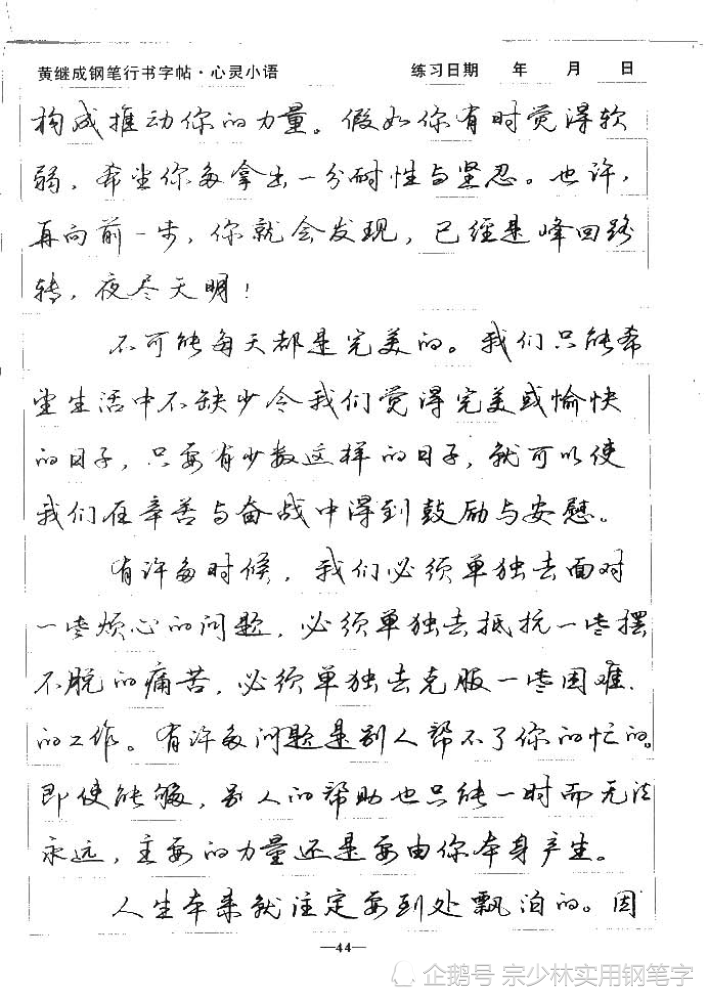 黄继成钢笔行书字帖·心灵小语 练习日期 年 月 日
构成推动你的力量。假如你有时觉得软
弱，希望你多拿出一分耐性与坚忍。也许，
再向前一步，你就会发现，已经是峰回路
转，夜尽天明！
不可能每天都是完美的。我们只能希
望生活中不缺少令我们觉得完美或愉快
的日子，只要有少数这样的日子，就可以使
我们在辛苦与奋战中得到鼓励与安慰。
有许多时候，我们必须单独去面对
一些烦心的问题，必须单独去抵抗一些摆
不脱的痛苦，必须单独去克服一些困难
的工作。有许多问题是别人帮不了你的忙的。
即使能够，别人的帮助也只能一时而无法
永远，主要的力量还是要由你本身产生。
人生本来就注定要到处飘泊的。因
—44—
企鹅号 宗少林实用钢笔字